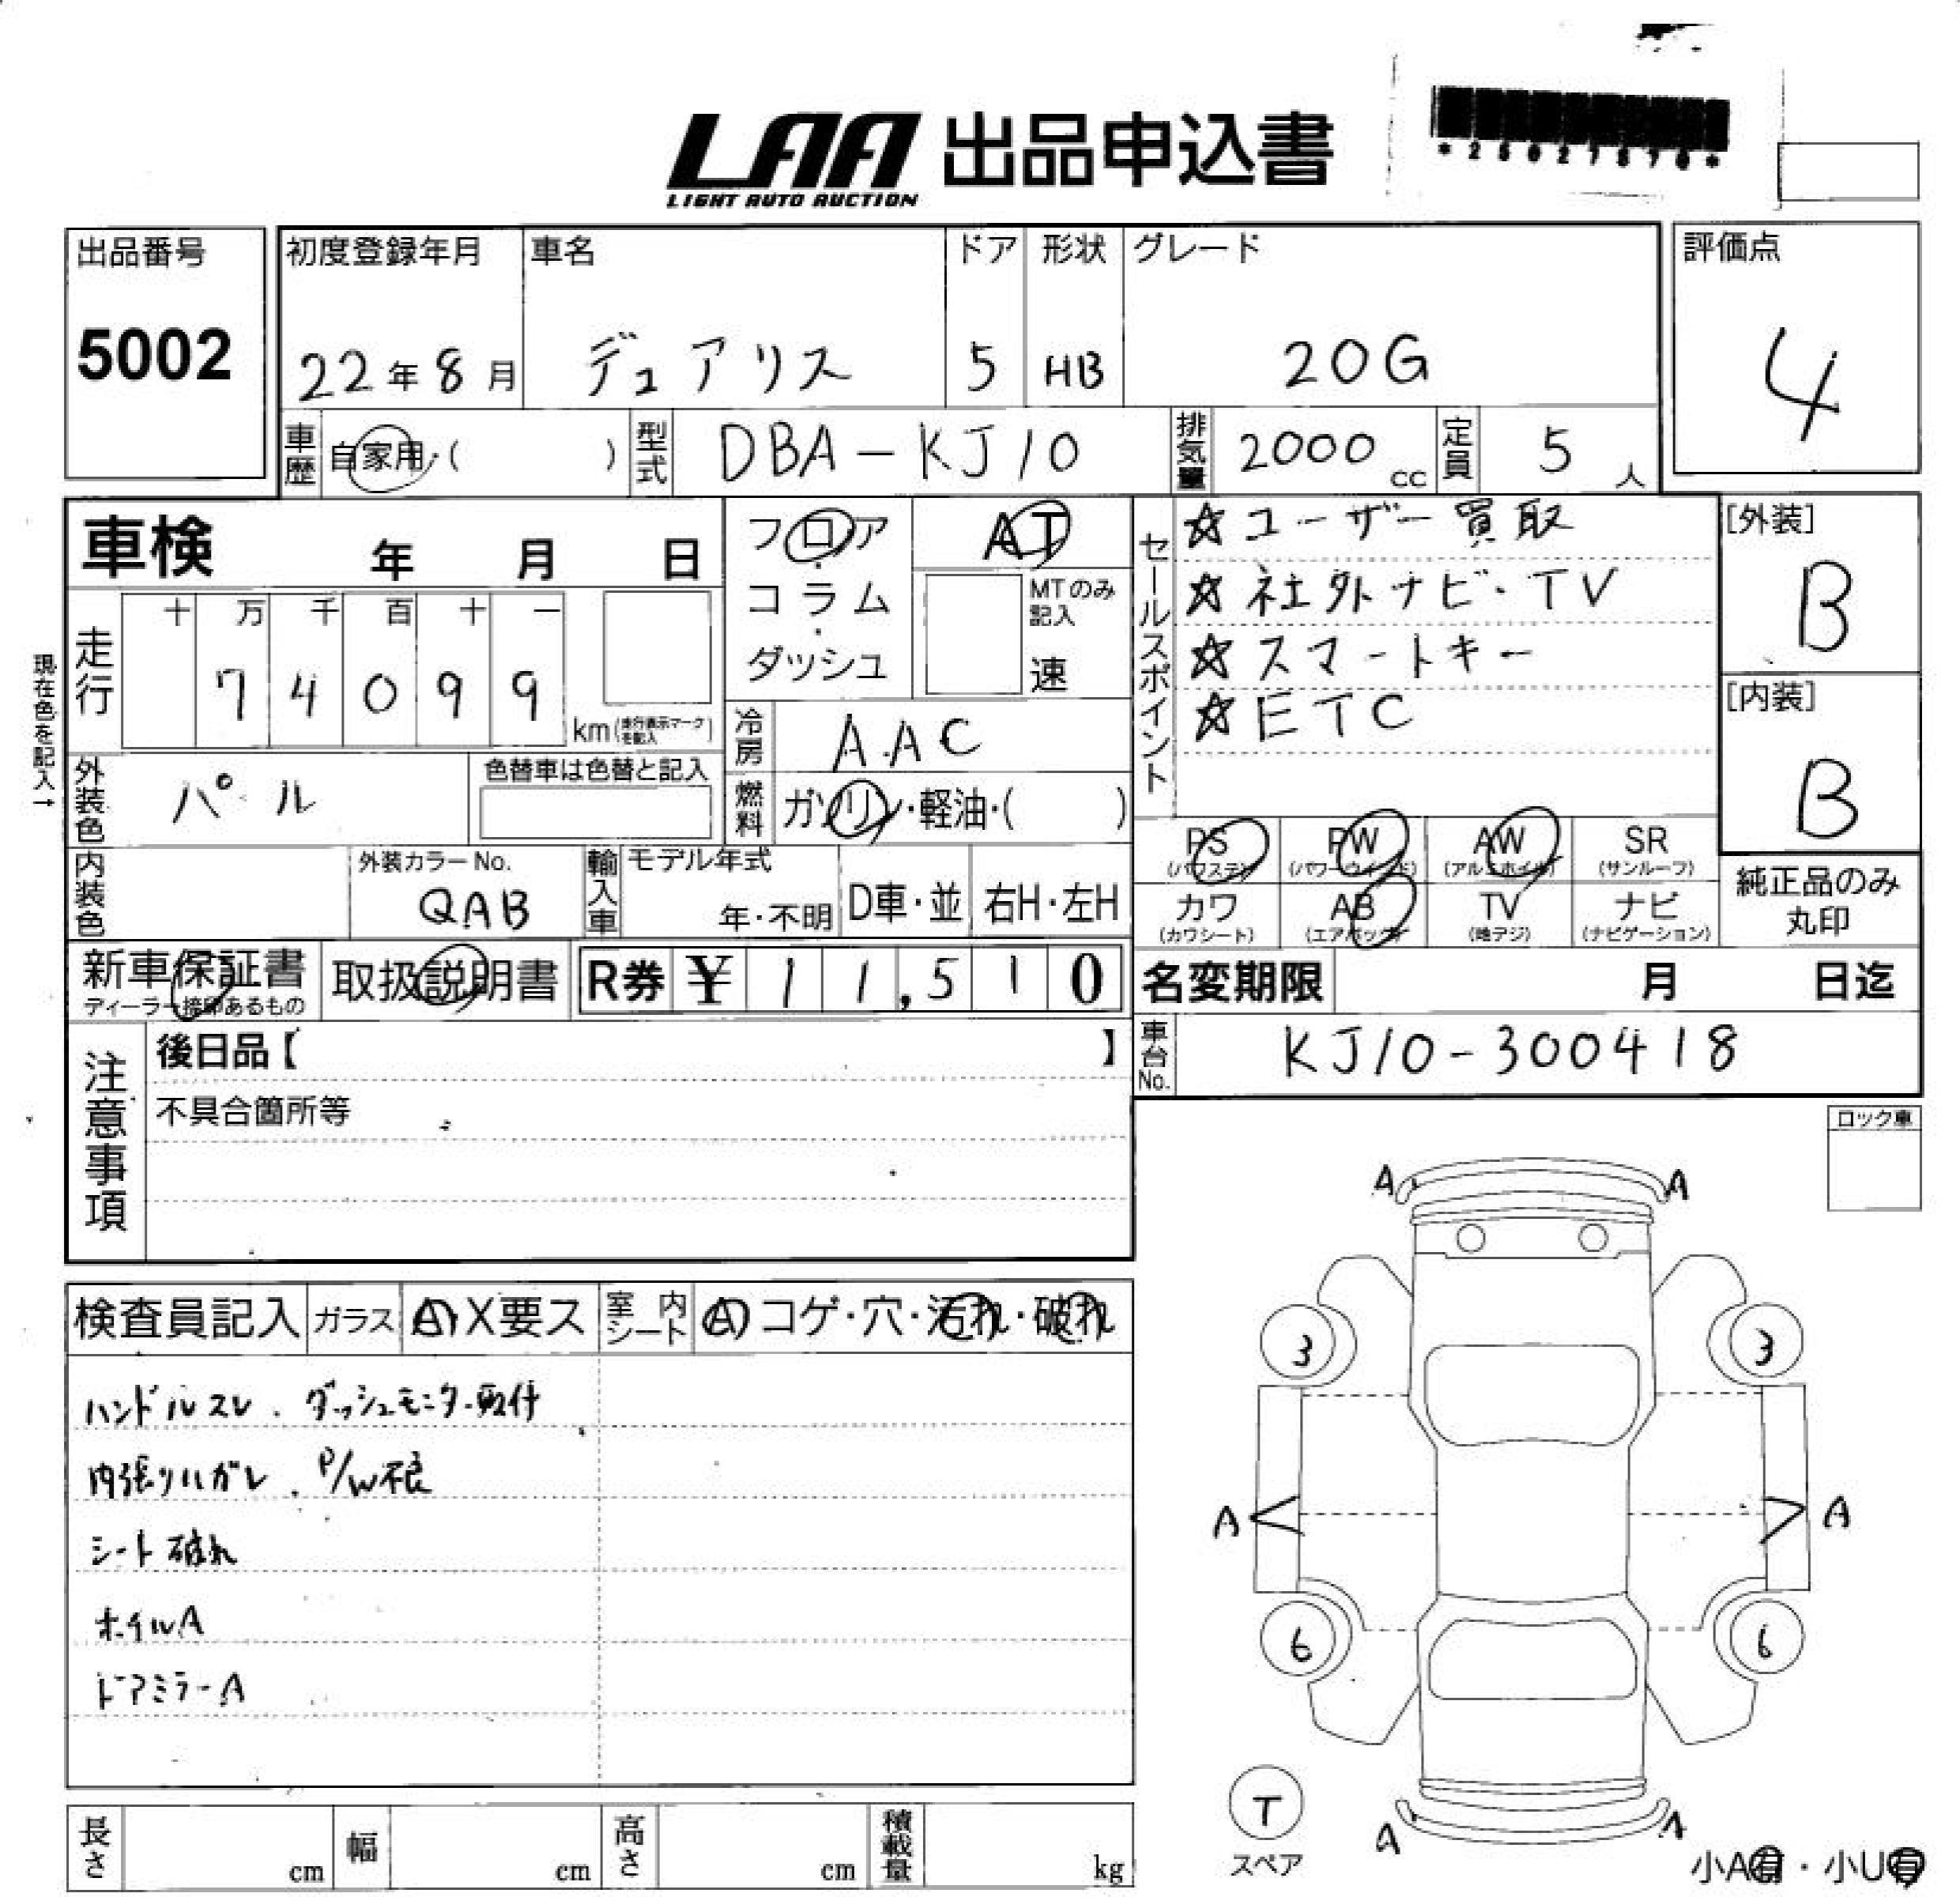 LAA 出品申込書
LIGHT AUTO AUCTION
出品番号
5002
初度登録年月
22年8月
車名
デュアリス
ドア
5
形状
HB
グレード
20G
評価点
4
車歴
自家用・( )
型式
DBA-KJ10
排気量
2000cc
定員
5人
車検 年 月 日
フロア・コラム・ダッシュ
AT
MTのみ記入
速
セールスポイント
☆ユーザー買取
☆社外ナビ・TV
☆スマートキー
☆ETC
[外装]
B
[内装]
B
現在色を記入→
走行
十 万 千 百 十 一
7 4 0 9 9
km(走行表示マークを記入)
冷房
A.AC
外装色
パール
色替車は色替と記入
燃料
ガソリン・軽油・( )
PS PW AW SR
(パワステ) (パワーウインド) (アルミホイル) (サンルーフ)
カワ AB TV ナビ
(カワシート) (エアバッグ) (地デジ) (ナビゲーション)
純正品のみ丸印
内装色
外装カラーNo.
QAB
輸入車
モデル年式
年・不明
D車・並
右H・左H
新車保証書
ディーラー捺印あるもの
取扱説明書
R券 ¥ 1 1,5 1 0
名変期限 月 日迄
車台No.
KJ10-300418
注意事項
後日品【 】
不具合箇所等
ロック車
検査員記入
ガラス
A X 要ス
室内シート
A コゲ・穴・汚れ・破れ
ハンドルスレ . ダッシュモニター取付
内張りハガレ . P/W不良
シート破れ
ホイルA
ドアミラーA
A A
3 3
A A
6 6
T
スペア
A A
小A有・小U有
長さ cm
幅 cm
高さ cm
積載量 kg